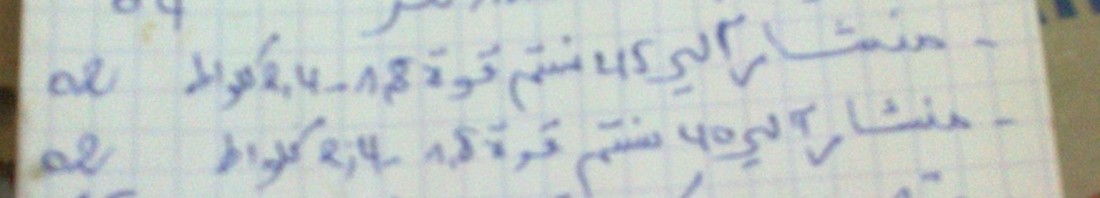 - منشار آلي 45 سنتم قوة 1,8-2,4 كواط 02
- منشار آلي 40 سنتم قوة 1,8-2,4 كلواط 02